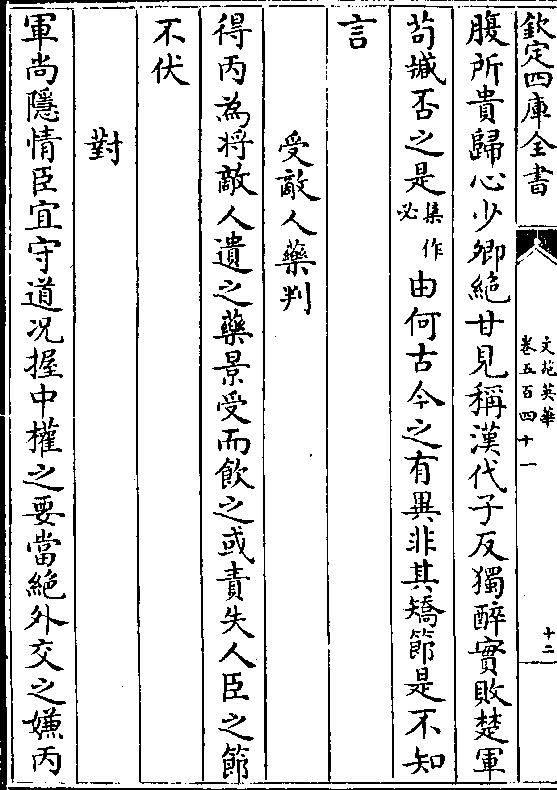 欽定四庫全書
文苑英華
卷五百四十一
十二
腹所貴歸心少卿絶甘見稱漢代子反獨醉實敗楚軍
苟縅否之是集作必由何古今之有異非其矯節是不知
言
受敵人藥判
得丙為将敵人遺之藥景受而飲之或責失人臣之節
不伏
對
軍尚隱情臣宜守道况握中權之要當絶外交之嫌丙